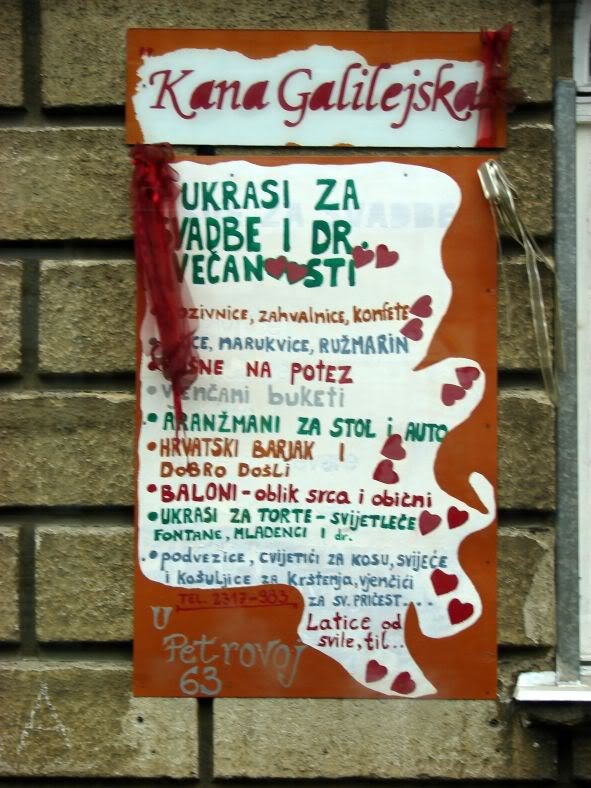 Kana Galilejska
UKRASI ZA
SVADBE I DR.
SVEČANOSTI
POZIVNICE, ZAHVALNICE, KONFETE
MARUKVICE, RUŽMARIN
NA POTEZ
VJENČANI buketi
ARANŽMANI ZA STOL i AUTO
HRVATSKI BARJAK I
DOBRO DOŠLI
BALONI - oblik srca i obični
UKRASI ZA TORTE - SVIJETLEĆE
FONTANE, MLADENCI I dr.
podvezice, CVIJETIĆI ZA KOSU, SVIJEĆE
i KOŠULJICE ZA KRŠTENJA, VJENČIĆI
TEL. 2317-983 ZA SV. PRIČEST....
LATICE OD
SVILE, til..
U
PETROVOJ
63
A